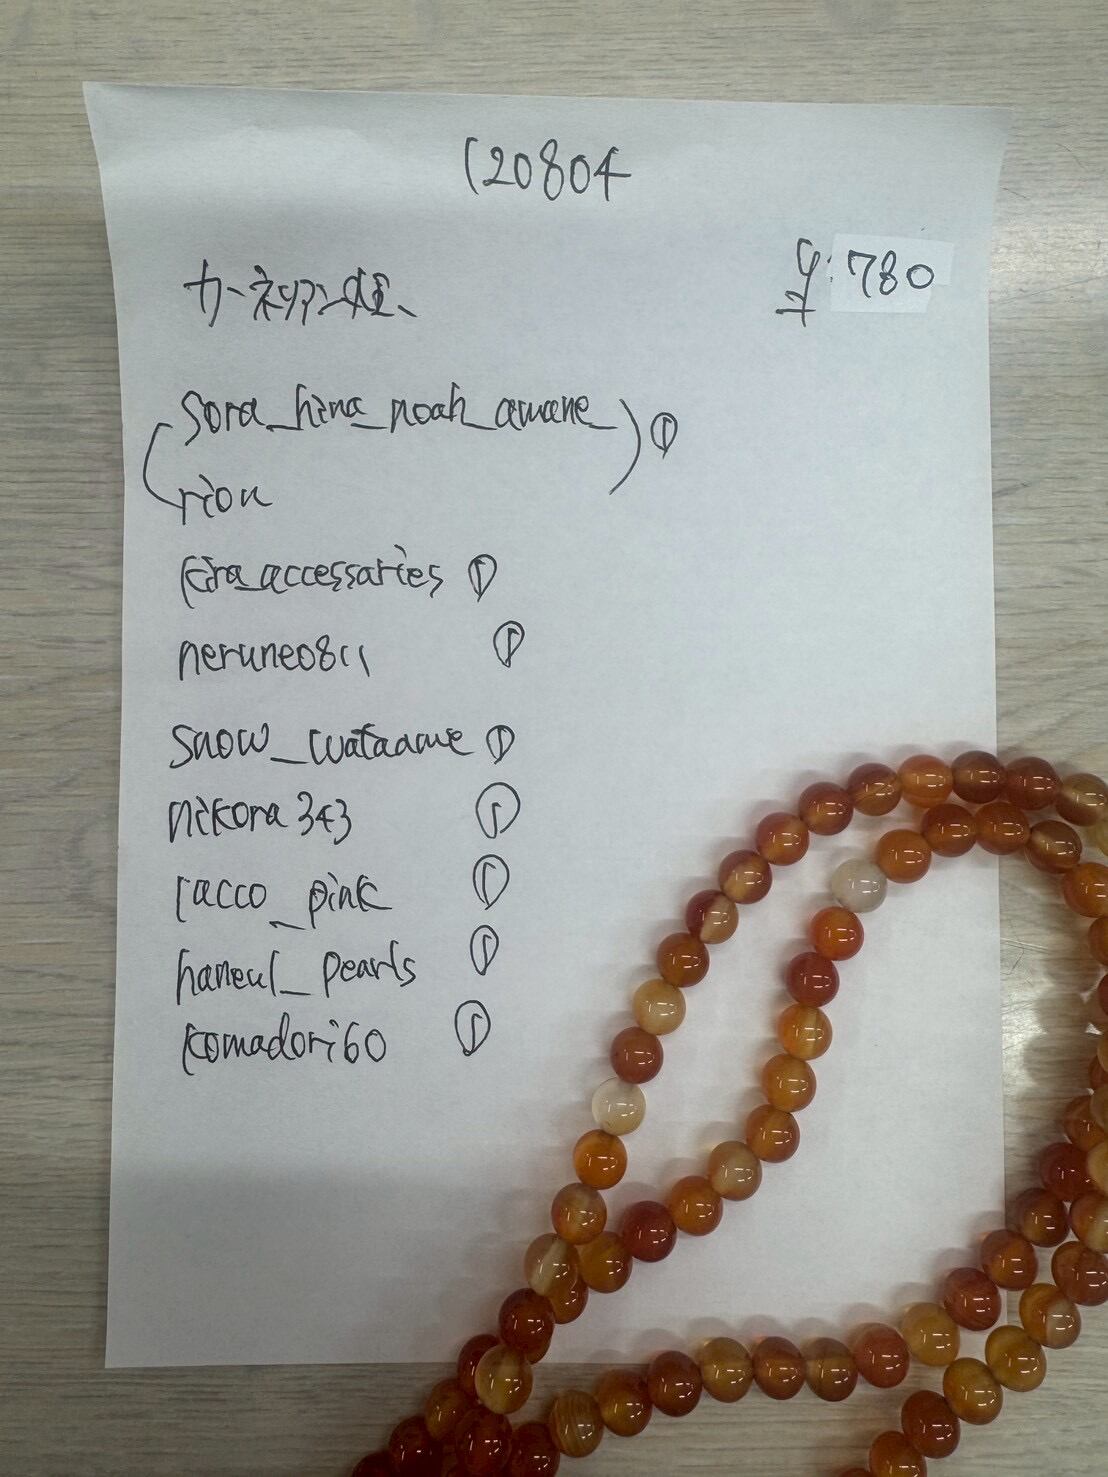 120804
カーネリアン
¥:780
(sora_hina_noah_amane_
rion) ①
kira_accessaries ①
nerune0811 ①
snow_wataame ①
nikora343 ①
racco_pink ①
haneul_pearls ①
komadori60 ①